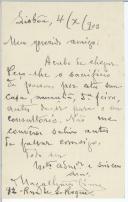 Lisboa, 4/X/903
Meu querido amigo,
Acabo de chegar.
Peço-lhe o sacrificio
de passar por esta sua
casa, amanhã, 5ª feira,
antes de ir para o seu
consultorio. Não me
convém sahir antes
de fallar comsigo.
Todo seu
Magalhães Lima
72-Rua de S. Roque